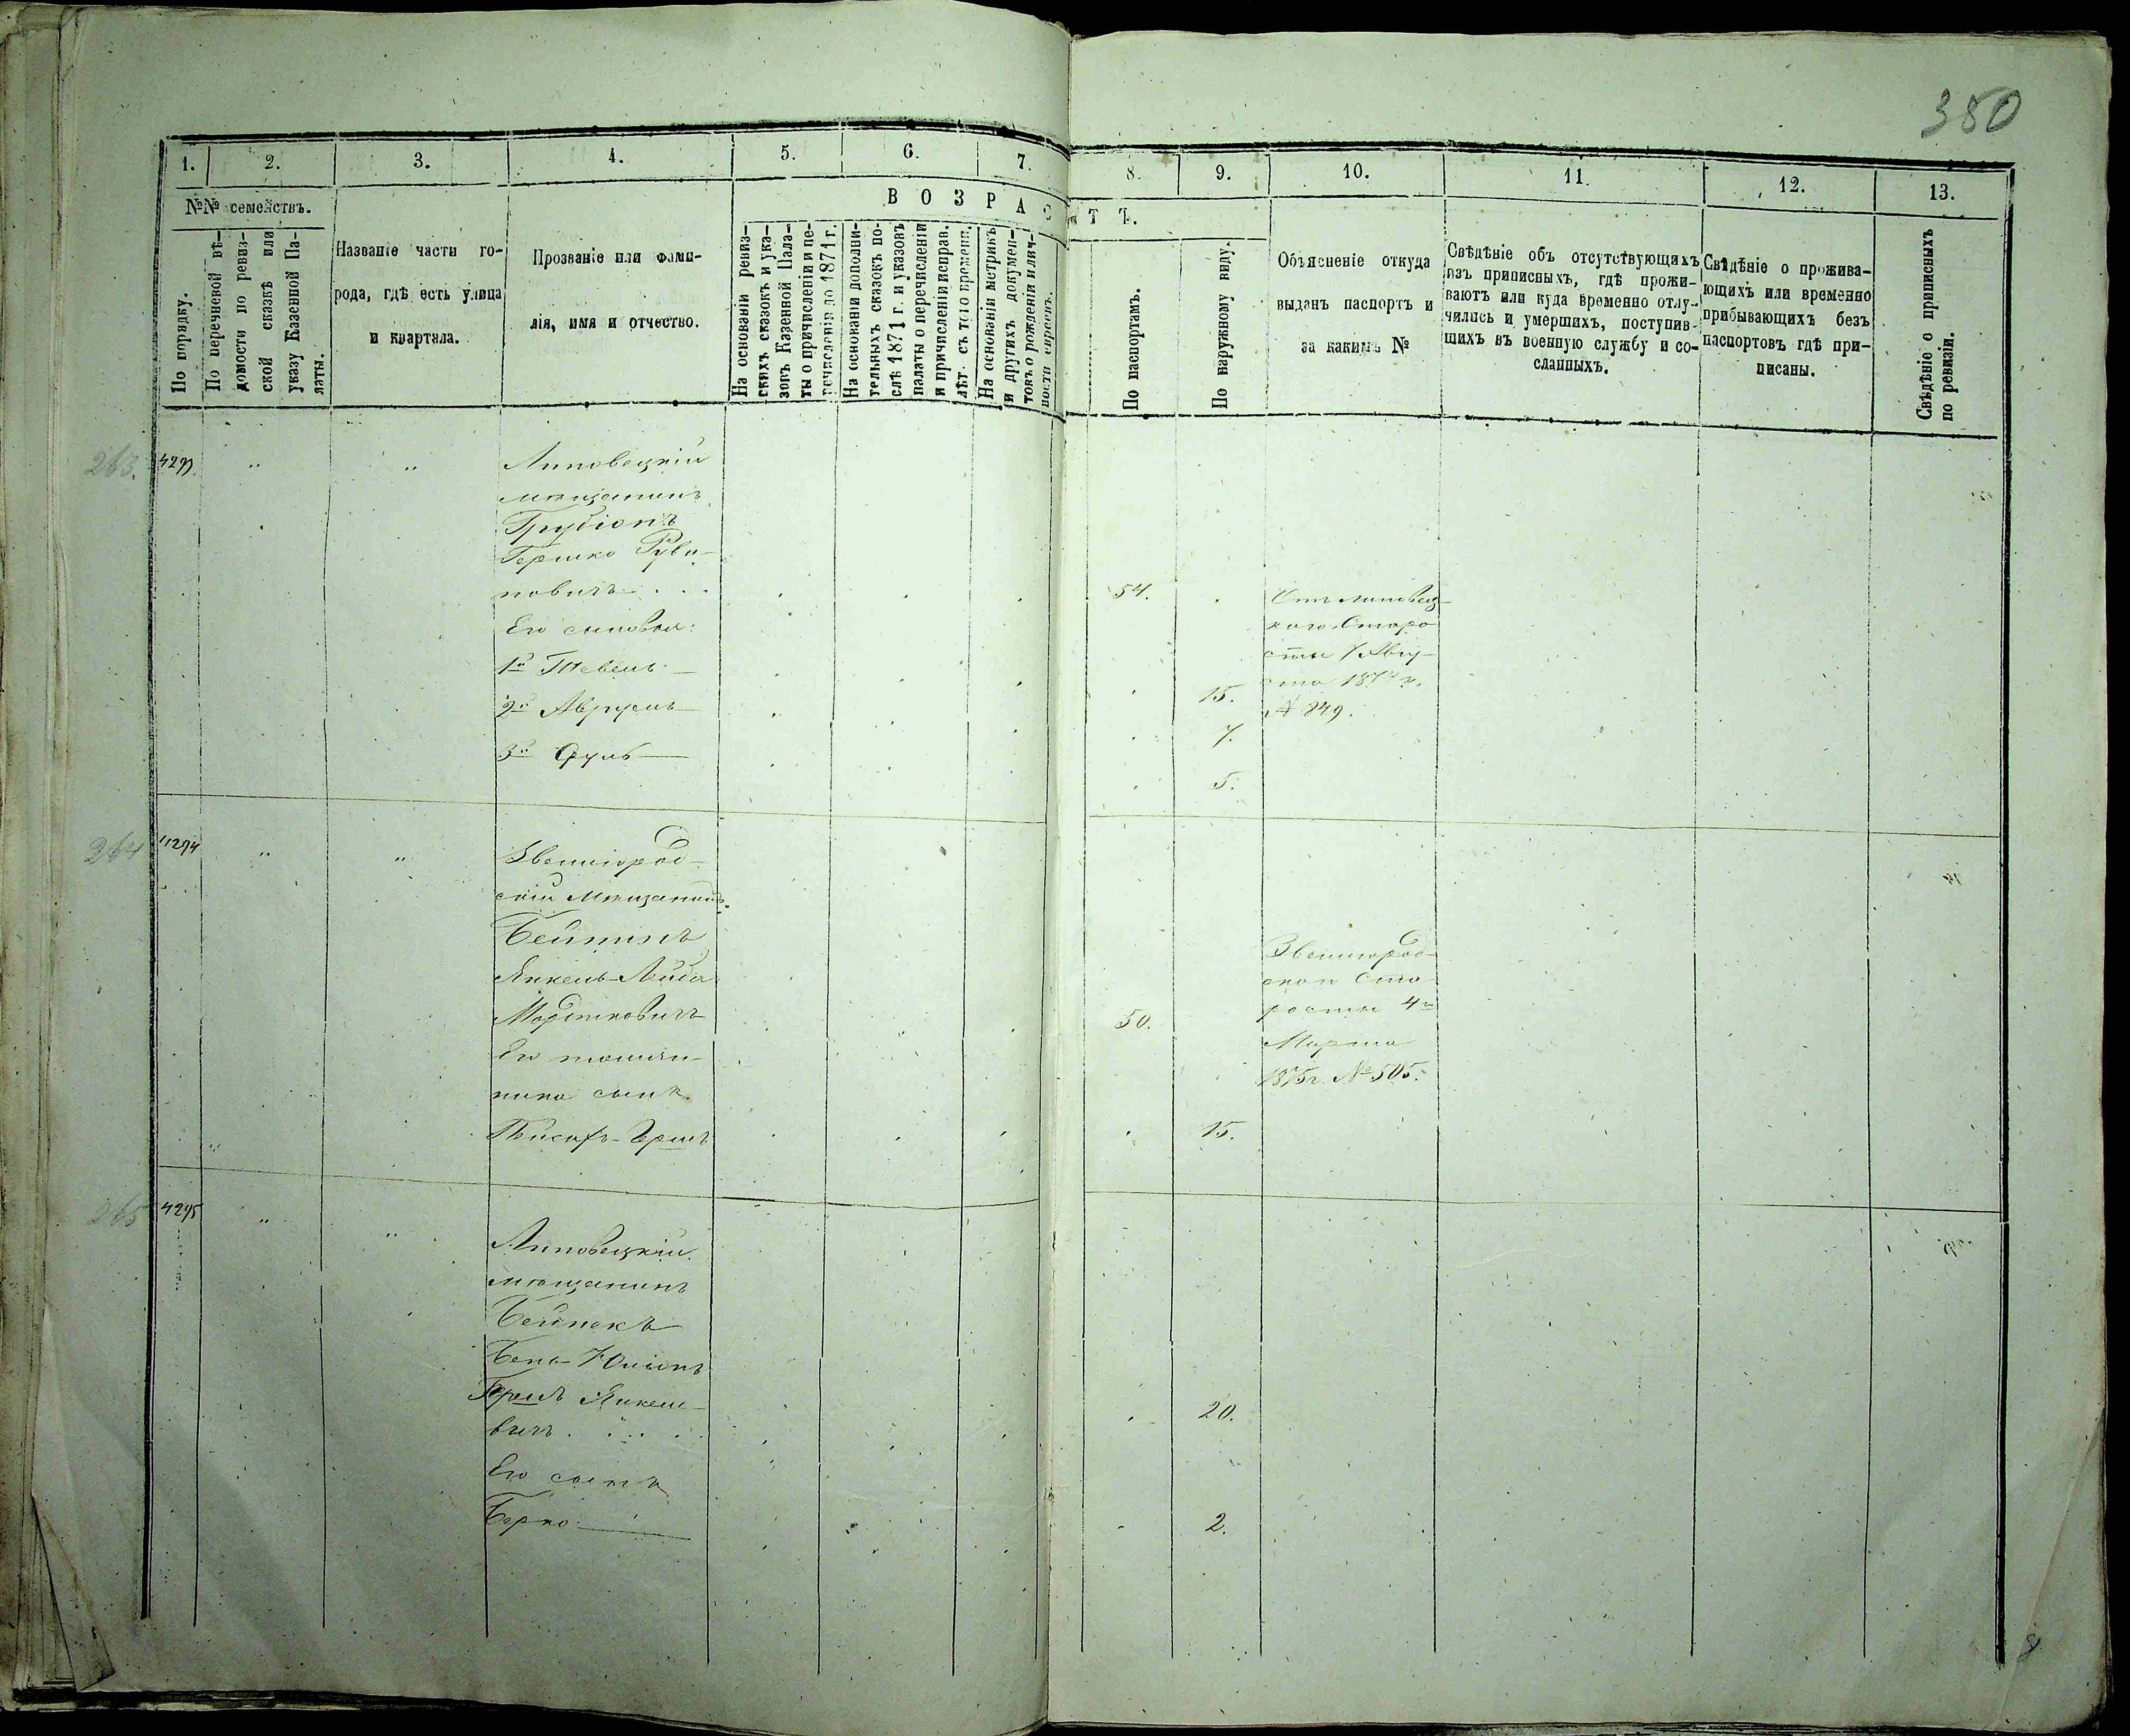 380
1. 2. 3. 4. 5. 6. 7. 8. 9. 10. 11. 12. 13.
№№ семействъ.
В О З Р А С Т Ъ.
По порядку.
По перечневой вѣ-
домости по ревиз-
ской сказкѣ или
указу Казенной Па-
латы.
Названіе части го-
рода, гдѣ есть улица
и квартала.
Прозваніе или фами-
лія, имя и отчество.
На основаніи ревиз-
скихъ сказокъ и ука-
зовъ Казенной Пала-
ты о причисленіи и пе-
речисленіи до 1871 г.
На основаніи дополни-
тельныхъ сказокъ по-
слѣ 1871 г. и указовъ
палаты о перечисленіи
и причисленіи исправ.
лѣт. съ того времени.
На основаніи метрикъ
и другихъ докумен-
товъ о рожденіи и лич-
ности евреевъ.
По паспортамъ.
По наружному виду.
Объясненіе откуда
выданъ паспортъ и
за какимъ №
Свѣдѣніе объ отсутствующихъ
изъ приписныхъ, гдѣ прожи-
ваютъ или куда временно отлу-
чились и умершихъ, поступив-
шихъ въ военную службу и со-
сланныхъ.
Свѣдѣніе о прожива-
ющихъ или временно
прибывающихъ безъ
паспортовъ гдѣ при-
писаны.
Свѣдѣніе о приписныхъ
по ревизіи.
263. 4293 " " Липовецкій
мѣщанинъ
Гершко Руви-
новичъ . . . 54.
Его сыновья:
1й Тевель 15.
2й Аврумъ 7.
3й Сруль 5.
Отъ липовец-
каго Старо
сты 7 Авгу-
ста 1874 г.
№ 849.
264 4294 " " Звенигород-
скій Мѣщанинъ
Янкель-Лейба
Мордковичъ 50.
сынъ
15.
Звенигород-
ской Ста
росты 4го
Марта
1875 г. № 505.
265 4295 " " Липовецкій
мѣщанинъ
Гершъ Янкеле-
вичъ . . . . 20.
Его сынъ
Берко 2.